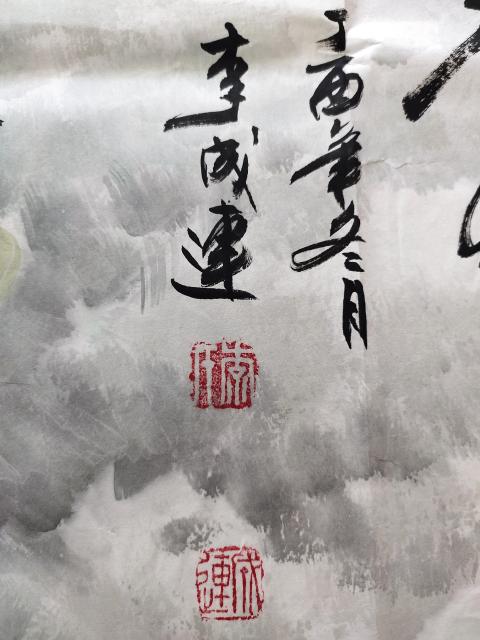 丁酉年冬月
李成連
成連